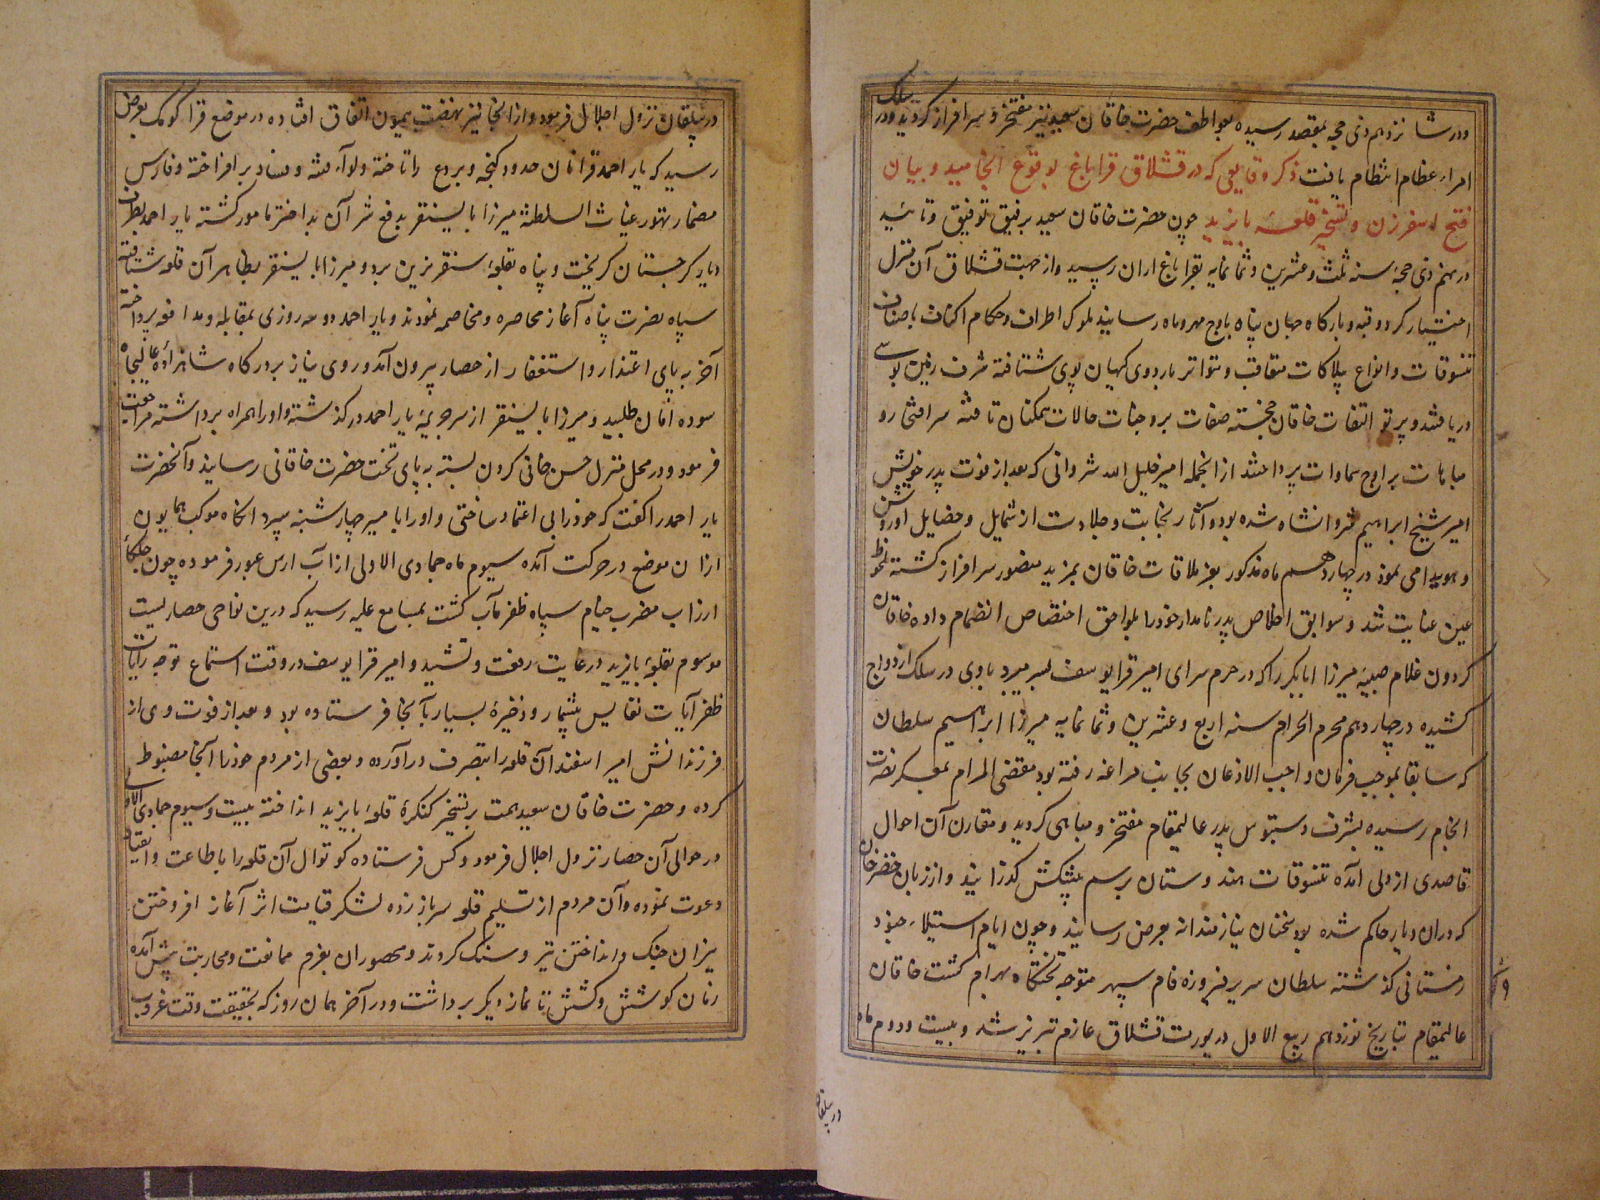 و در شانزدهم ذی حجه بمقصد رسیده بعواطف حضرت خاقان سعید نیز مفتخر و سرافراز کردید و در سلک
امراء عظام انتظام یافت ذکر وقایعی که در قشلاق قراباغ بوقوع انجامید و بیان
فتح اسفرزن و تسخیر قلعه بایزید چون حضرت خاقان سعید برفیق توفیق و تائید
در نهم ذی حجه سنه ثلث و عشرین و ثمانمایه بقراباغ اران رسید و از جهت قشلاق آن منزل
اختیار کرد و قبه و بارکاه جهان پناه باوج مهر و ماه رسانید ملوک اطراف و حکام اکناف باصناف
تنسوقات و انواع بیلاکات متعاقب و متواتر باردوی کیهان پوی شتافته شرف زمین بوسی
دریافتند و پرتو التفات خاقان خجسته صفات بر وجنات حالات همکنان تافته سر افتخار و
مباهات بر اوج سماوات برداشتند از انجمله امیر خلیل الله شروانی که بعد از فوت پدر خویش
امیر شیخ ابراهیم شروانشاه شده بود و آثار نجابت و جلادت از شمایل و خصایل او روشن
و هویدا می نمود در چهاردهم ماه مذکور بعز ملاقات خاقان بمزید منصور سرافراز کشته ملحوظ
عین عنایت شد و سوابق اخلاص پدر نامدار خود را بلواحق اختصاص انضمام داده خاقان
کردون غلام صبیه میرزا ابابکر را که در حرم سرای امیر قرا یوسف بسر میبرد با وی در سلک ازدواج
کشیده در چهاردهم محرم الحرام سنه اربع و عشرین و ثمانمایه میرزا ابراهیم سلطان
که سابقا بموجب فرمان واجب الاذعان بجانب مراغه رفته بود مقضی المرام بمعسکر نصرت
انجام رسیده بشرف دستبوس پدر عالیمقام مفتخر و مباهی کردید و مقارن آن احوال
قاصدی از دلی آمده تنسوقات هندوستان برسم پیشکش کذرانید و از زبان خضر خان
که در ان دیار حاکم شده بود سخنان نیازمندانه بعرض رسانید و چون ایام استیلاء جنود
زمستانی کذشته سلطان سریر فیروزه فام سپهر متوجه تختکاه بهرام کشت خاقان
عالیمقام بتاریخ نوزدهم ربیع الاول در یورت قشلاق عازم تبریز شد و بیست و دوم ماه
در بیلقان
در بیلقان نزول اجلال فرمود و از انجا نیز نهضت همیون اتفاق افتاده در موضع قرا کوبک بعرض
رسید که یار احمد قرامان حدود کنجه و بردع را تاخته و لواء فتنه و فساد بر افراخته و فارس
مضمار تهور غیاث السلطنه میرزا بایسنقر بدفع شر آن بد اختر مامور کشته یار احمد بطرف
دیار کرجستان کریخت و پناه بقلعه سنقر بزین برد و میرزا بایسنقر بظاهر آن قلعه شتافته
سپاه نصرت پناه آغاز محاصره و مخاصمه نمودند و یار احمد دو سه روزی بمقابله و مدافعه پرداخته
آخر بپای اعتذار و استغفار از حصار بیرون آمد و روی نیاز بر درکاه شاهزاده عالیجاه
سوده امان طلبید و میرزا بایسنقر از سر جریمه یار احمد در کذشته و او را همراه برداشته مراجعت
فرمود و در محل منزل حسن جانی کردن بسته بپای تخت حضرت خاقانی رسانید و آنحضرت
یار احمد را کفت که خود را بی اعتماد ساختی و او را بامیر چهارشنبه سپرد انکاه موکب همایون
از ان موضع در حرکت آمده سیوم ماه جمادی الاولی از آب ارس عبور فرموده چون جلکاء
ارزاب مضرب خیام سپاه ظفر مآب کشت بمسامع علیه رسید که درین نواحی حصاریست
موسوم بقلعه بایزید در غایت رفعت و تشیید و امیر قرا یوسف در وقت استماع توجه رایات
ظفر آیات نفایس بیشمار و ذخیره بسیار بآنجا فرستاده بود و بعد از فوت وی از
فرزندانش امیر اسفند آن قلعه را بتصرف در آورده و بعضی از مردم خود را آنجا مضبوط
کرده و حضرت خاقان سعید همت بر تسخیر کنکره قلعه بایزید انداخته بیست و سیوم جمادی الاول
در حوالی آن حصار نزول اجلال فرمود و کس فرستاده کوتوال آن قلعه را باطاعت و انقیاد
دعوت نموده و آن مردم از تسلیم قلعه سرباز زده لشکر قیامت اثر آغاز افروختن
نیران جنک و انداختن تیر و سنک کردند و محصوران بعزم ممانعت و محاربت پیش آمده
زمان کوشش و کشش تا نماز دیکر برداشت و در آخر همان روز که بحقیقت وقت غروب